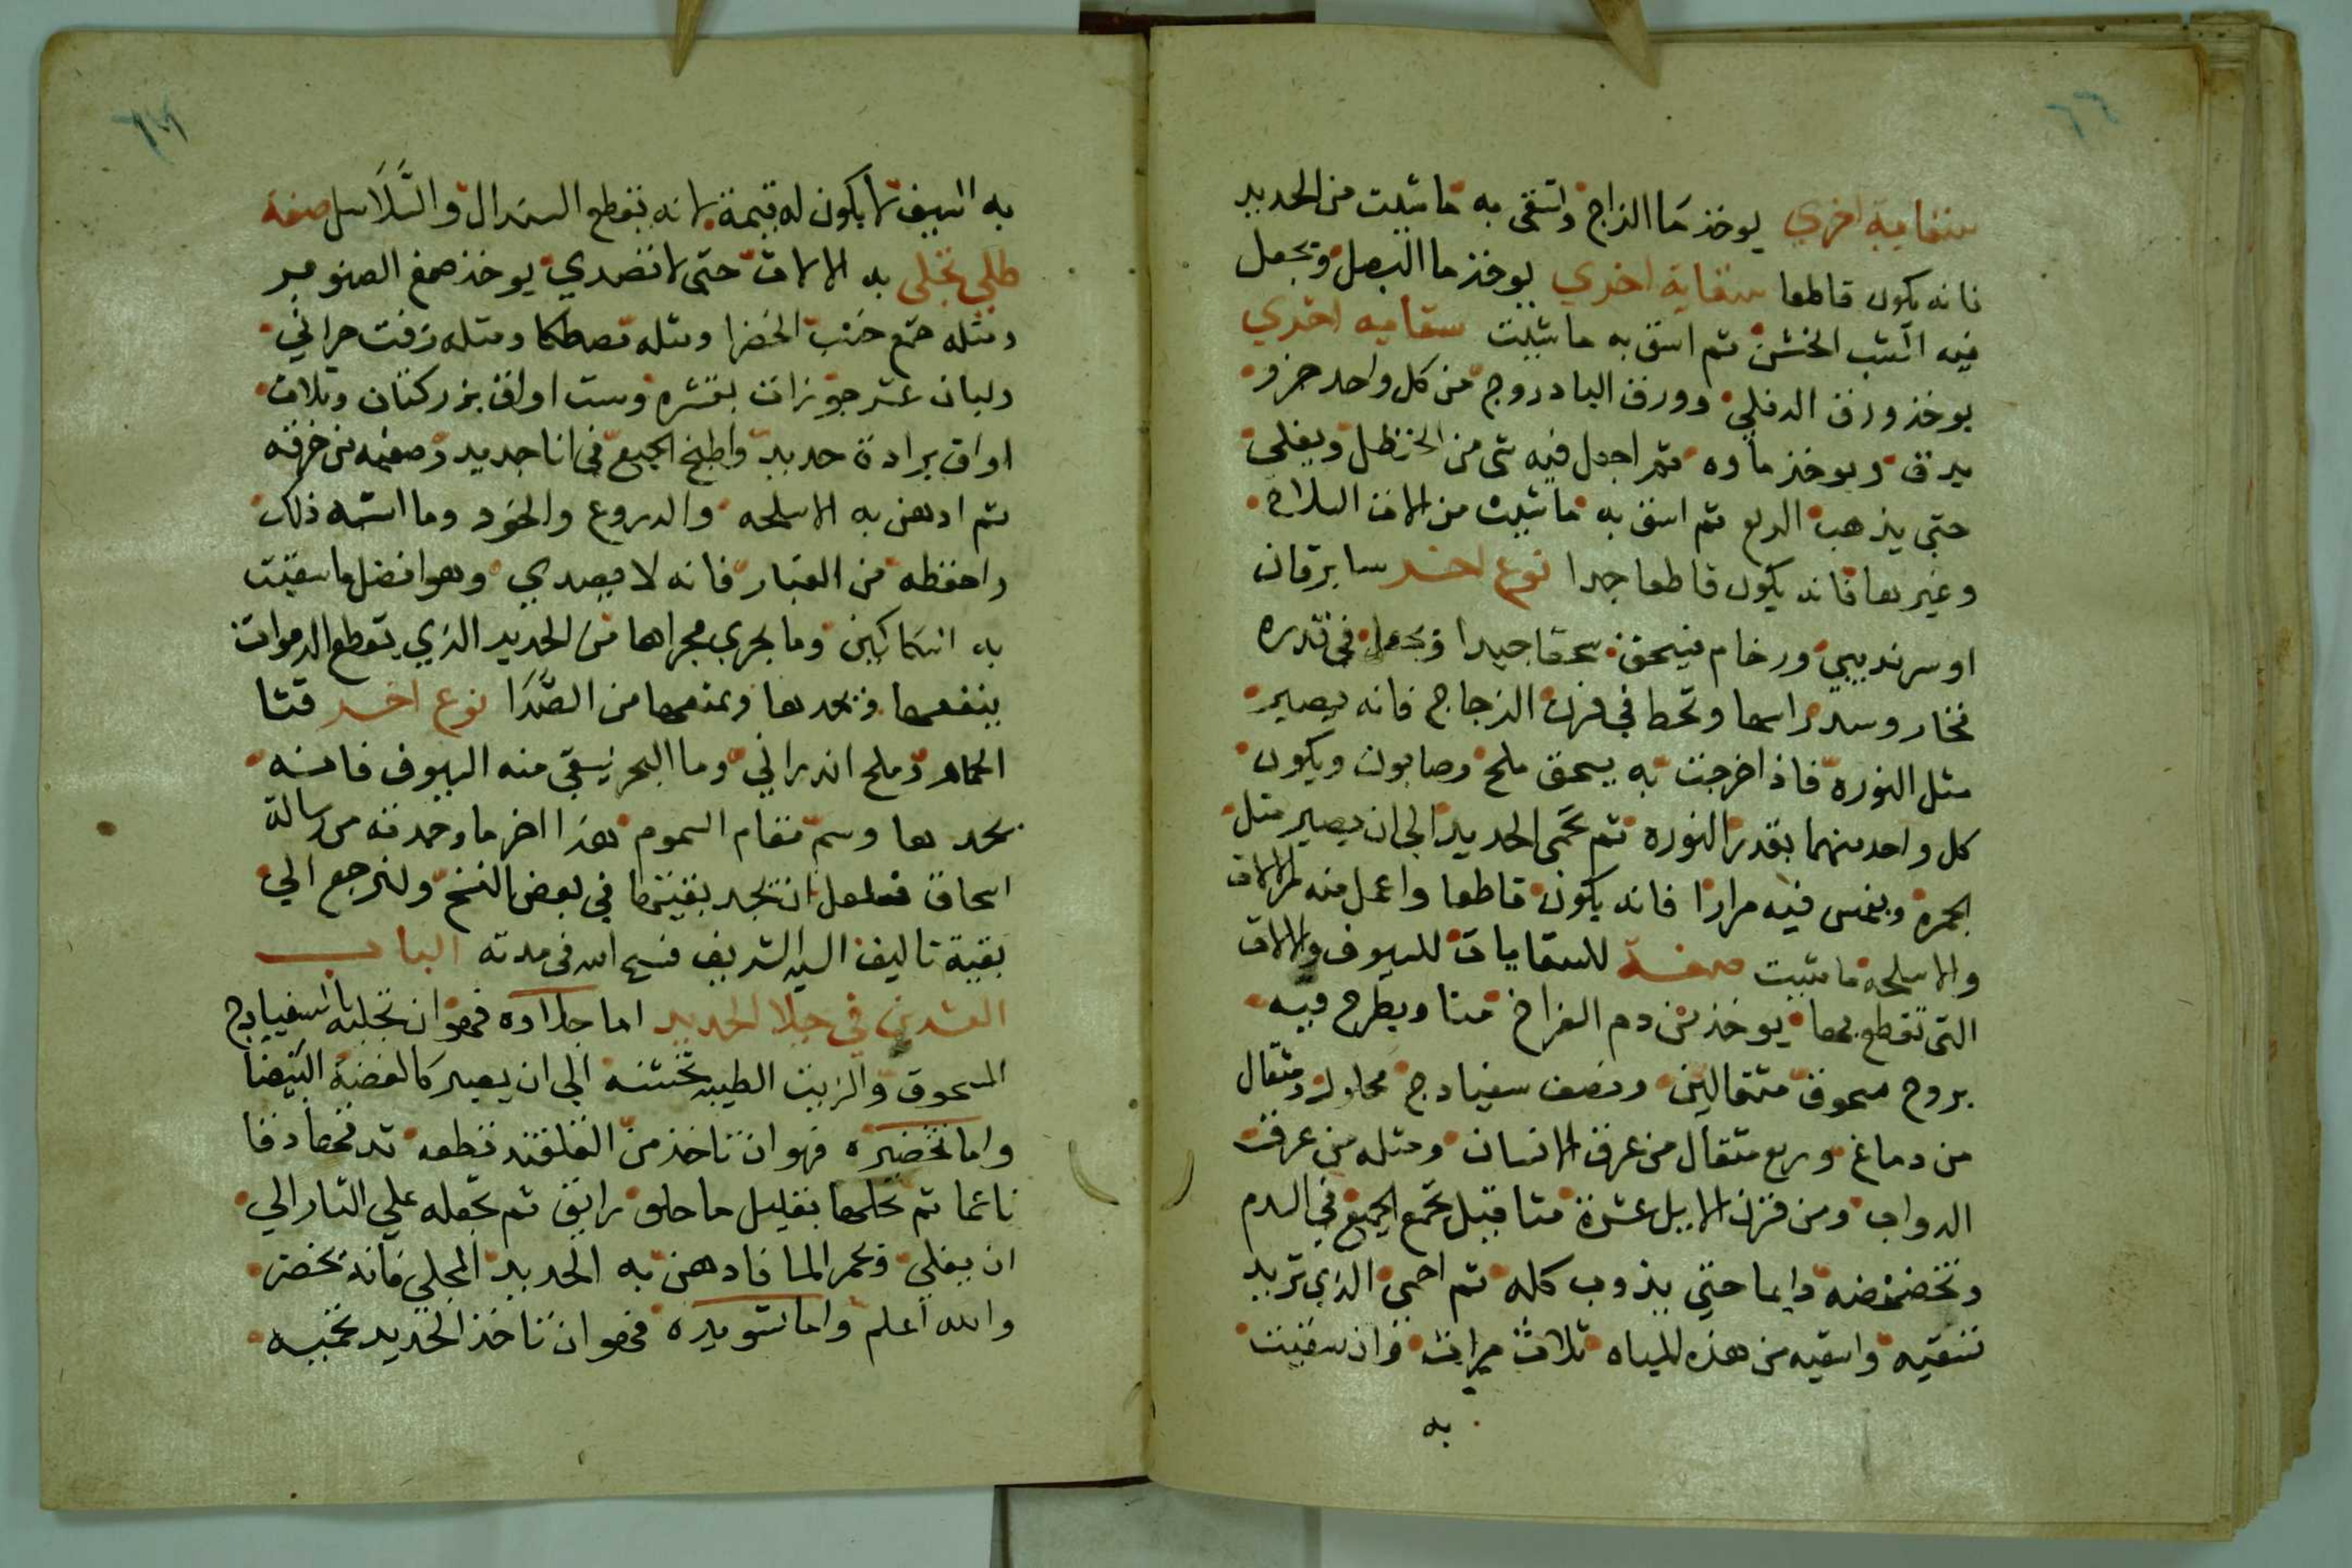 ٦٦
سقاية اخري يوخذ ما الزاج وتسقى به ما شيت من الحديد
فانه يكون قاطعا سقاية اخري يوخذ ما البصل ويجعل
فيه الشب الخشن ثم اسق به ما شيت سقايه اخري
يوخذ ورق الدفلي وورق البادروج من كل واحد جزو
يدق ويوخذ ماوه ثم اجعل فيه شى من الحنظل ويغلي
حتي يذهب الربع ثم اسق به ما شيت من الات السلاح
وغيرها فانه يكون قاطعا جدا نوع اخر سابرقان
او سرنديبي ورخام فيسحق سحقا جيدا ويجعل في قدره
فخار وسد راسها وتحط في فرن الزجاج فانه يصير
مثل النوره فاذا خرجت به يسحق ملح وصابون ويكون
كل واحد منهما بقدر النوره ثم تحمى الحديد الي ان يصير مثل
الجمره ويغمس فيه مرارا فانه يكون قاطعا واعمل منه الالات
والاسلحه ما شيت صفة للسقايات للسيوف والالات
التى تقطع بها يوخذ من دم الفراخ منا ويطرح فيه
بروح مسحوق مثقالين ونصف سفيادج محلول ومثقال
من دماغ وربع مثقال من عرق الانسان ومثله من عرق
الدواب ومن قرن الايل عشرة مثاقيل تجمع الجميع في الدم
وتخضخضه دايما حتي يذوب كله ثم احمي الذي تريد
تسقيه واسقيه من هذه المياه ثلاث مرات وان سقيت
به
به السيف لا يكون له قيمة لانه يقطع السندال والسلاسل صفة
طلي تجلى به الالات حتى لا تصدي يوخذ صمغ الصنوبر
ومثله صمغ حبت الخضرا ومثله مصطكا ومثله زفت حراني
ولبان عشر جوزات بقشره وست اواق بزر كتان وثلاث
اواق برادة حديد واطبخ الجميع في انا جديد وصفيه من خرقه
ثم ادهن به الاسلحه والدروع والخود وما اشبه ذلك
واحفظه من الغبار فانه لا يصدي وهو افضل ما سقيت
به السكاكين وما يجري مجراها من الحديد الذي يقطع الدموات
ينفعها ويحدها ويمنعها من الصدا نوع اخر قثا
الحمار وملح اندراني وما البحر يسقي منه السيوف فانه
يحدها وسم مقام السموم هذا اخر ما وجدته من رسالة
اسحاق فلعل ان تجد بقيتها في بعض النسخ ولنرجع الي
بقية تاليف السيد الشريف فسح الله في مدته الباب
العشرين في جلا الحديد اما جلاوه فهو ان تجليه بالسفيادج
المسحوق والزيت الطيب بخشنه الي ان يصير كالفضة البيضا
واما تخضيره فهو ان تاخذ من القلقند قطعه تدقها دقا
ناعما ثم تحلها بقليل ما حلو رايق ثم تجعله علي النار الي
ان يغلي ويحمر الما فادهن به الحديد المجلي فانه يخضر
والله اعلم واما تسويده فهو ان تاخذ الحديد تحميه